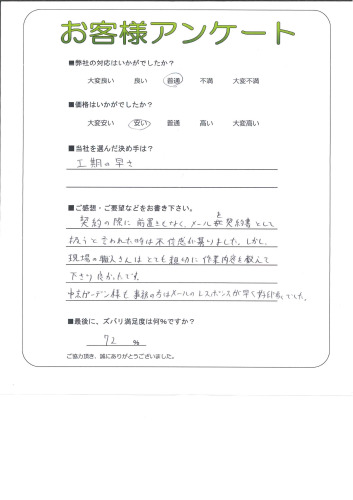 お客様アンケート
■弊社の対応はいかがでしたか?
大変良い 良い 普通 不満 大変不満
■価格はいかがでしたか?
大変安い 安い 普通 高い 大変高い
■当社を選んだ決め手は?
工期の早さ
■ご感想・ご要望などをお書き下さい。
契約の際に前置きもなく、メールを契約書として
扱うと言われた時は不信感が募りました。しかし、
現場の職人さんはとても親切に作業内容を教えて
下さり良かったです。
ガーデン様も事務の方はメールのレスポンスが早く好印象でした。
■最後に、ズバリ満足度は何%ですか?
72 %
ご協力頂き、誠にありがとうございました。